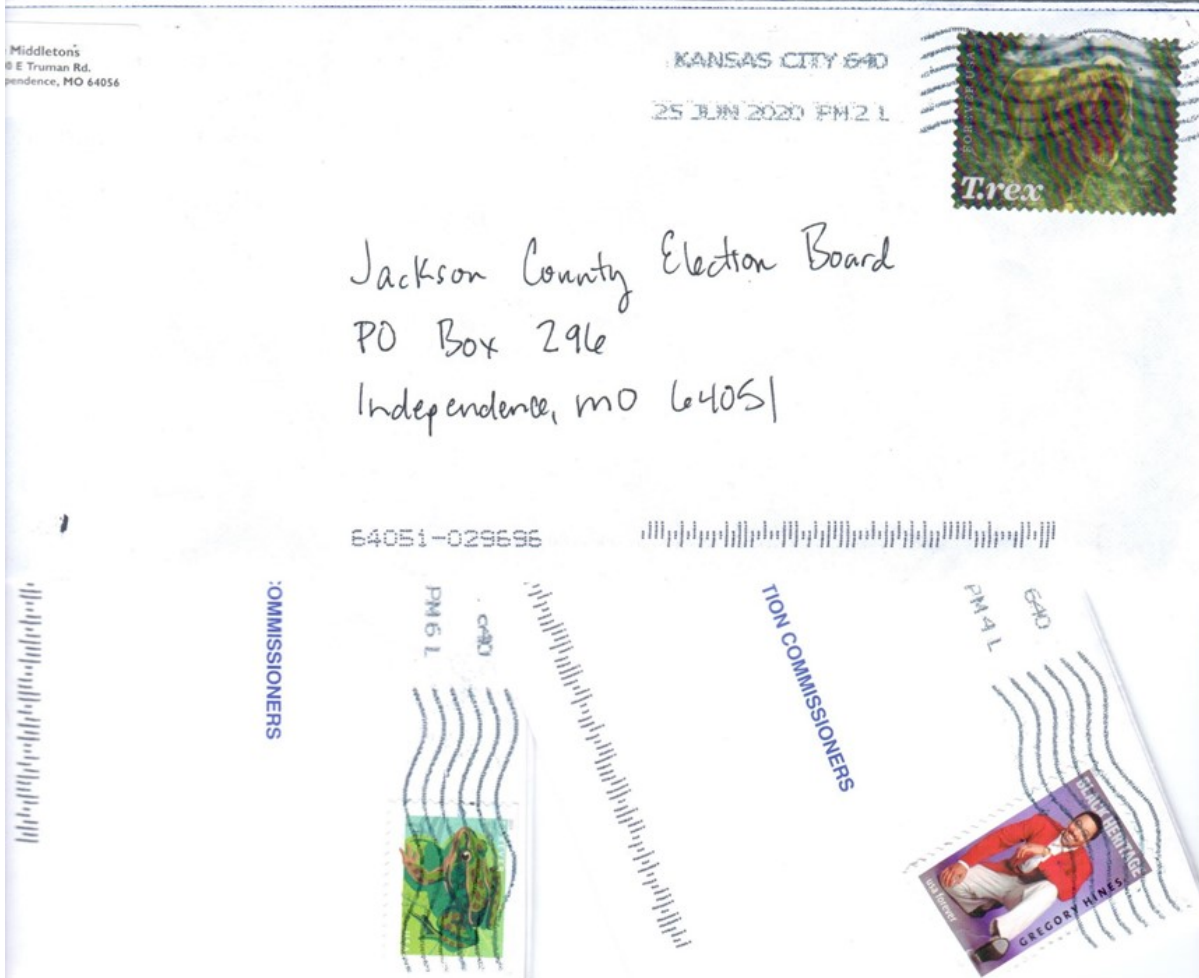 Middleton's
0 E Truman Rd.
pendence, MO 64056
KANSAS CITY 640
25 JUN 2020 PM 2 L
FOREVER USA
T.rex
Jackson County Election Board
PO Box 296
Independence, MO 64051
64051-029696
OMMISSIONERS
640
PM 6 L
TION COMMISSIONERS
640
PM 4 L
BLACK HERITAGE
usa forever
GREGORY HINES